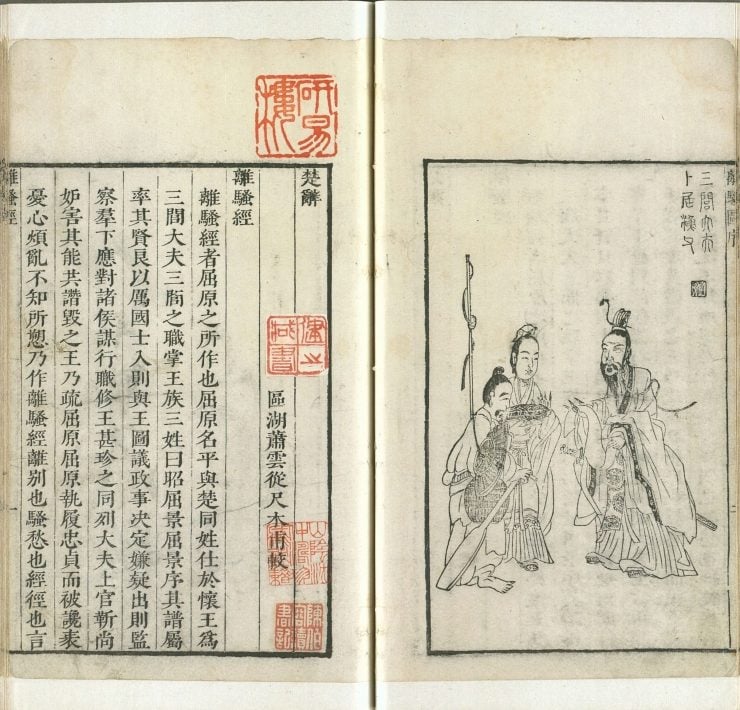 離騷圖序
三閭大夫
卜居漁父
二
研易樓
楚辭
區湖蕭雲從尺木甫較
離騷經
離騷經者屈原之所作也屈原名平與楚同姓仕於懷王爲
三閭大夫三閭之職掌王族三姓曰昭屈景屈景序其譜屬
率其賢良以厲國士入則與王圖議政事决定嫌疑出則監
察羣下應對諸侯謀行職修王甚珍之同列大夫上官靳尚
妒害其能共譖毀之王乃疏屈原屈原執履忠貞而被讒衺
憂心煩亂不知所愬乃作離騷經離別也騷愁也經徑也言
離騷經
一